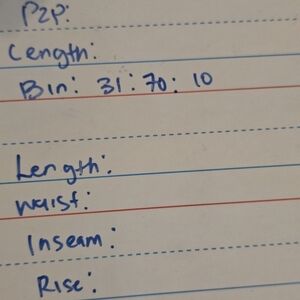 P2P:
Length:
Bin: 31: 70: 10
Length:
Waist:
Inseam:
Rise: